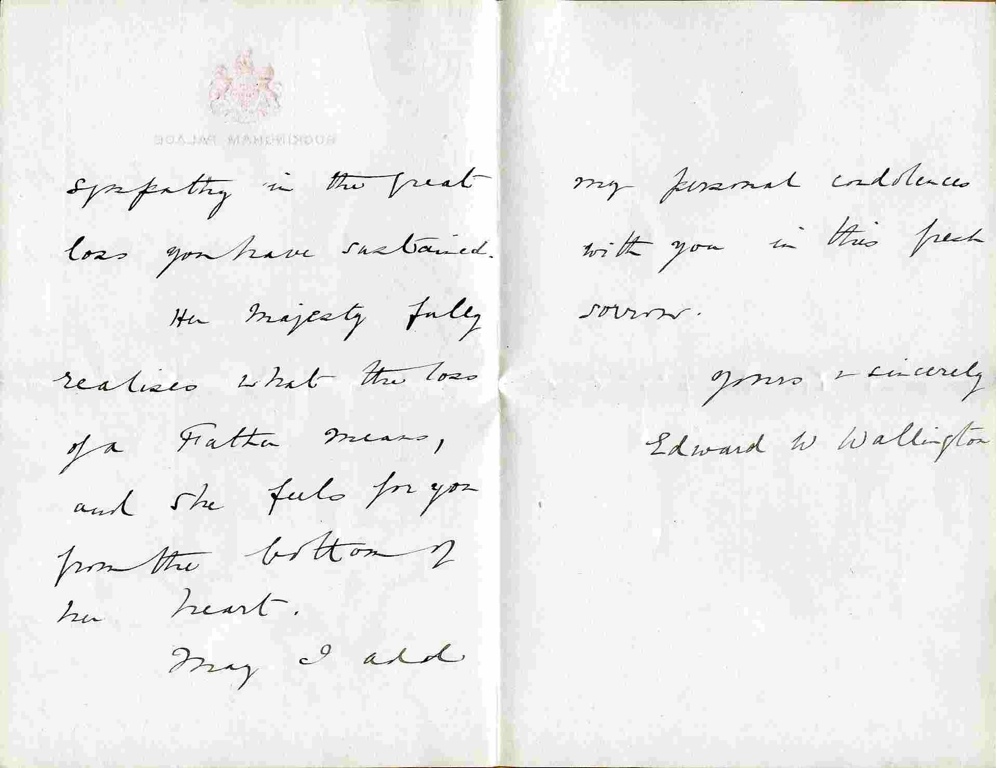 BUCKINGHAM PALACE
sympathy in the great
loss you have sustained.
Her Majesty fully
realises what the loss
of a Father means,
and she feels for you
from the bottom of
her heart.
May I add
my personal condolences
with you in this fresh
sorrow.
Yours sincerely
Edward W Wallington